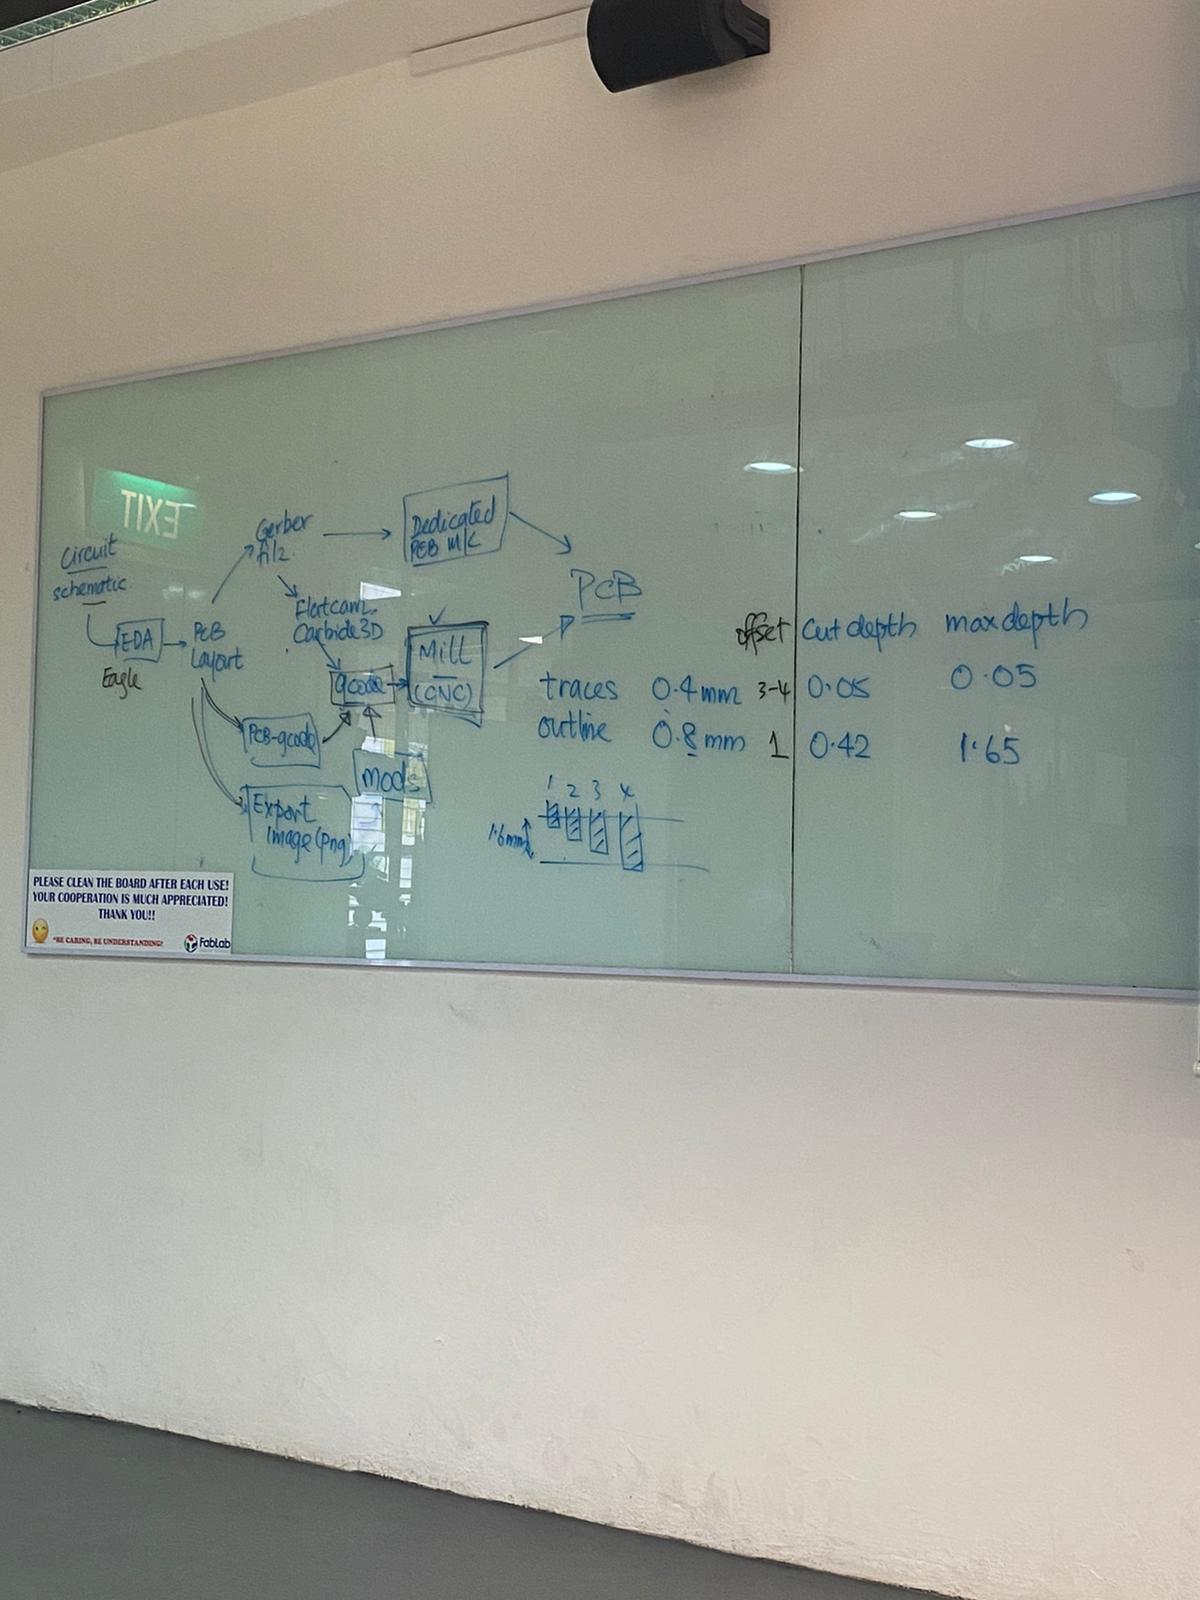 EXIT
Circuit
schematic
EDA
Eagle
PCB
Layout
Gerber
Dedicated
PCB M/C
PCB
Flatcam
Carbide3D
gcode
Mill
(CNC)
PCB-gcode
mods
Export
image (png)
offset cut depth max depth
traces 0.4mm 3-4 0.05 0.05
outline 0.8mm 1 0.42 1.65
1 2 3 4
1.6mm
PLEASE CLEAN THE BOARD AFTER EACH USE!
YOUR COOPERATION IS MUCH APPRECIATED!
THANK YOU!!
*BE CARING, BE UNDERSTANDING!
FabLab